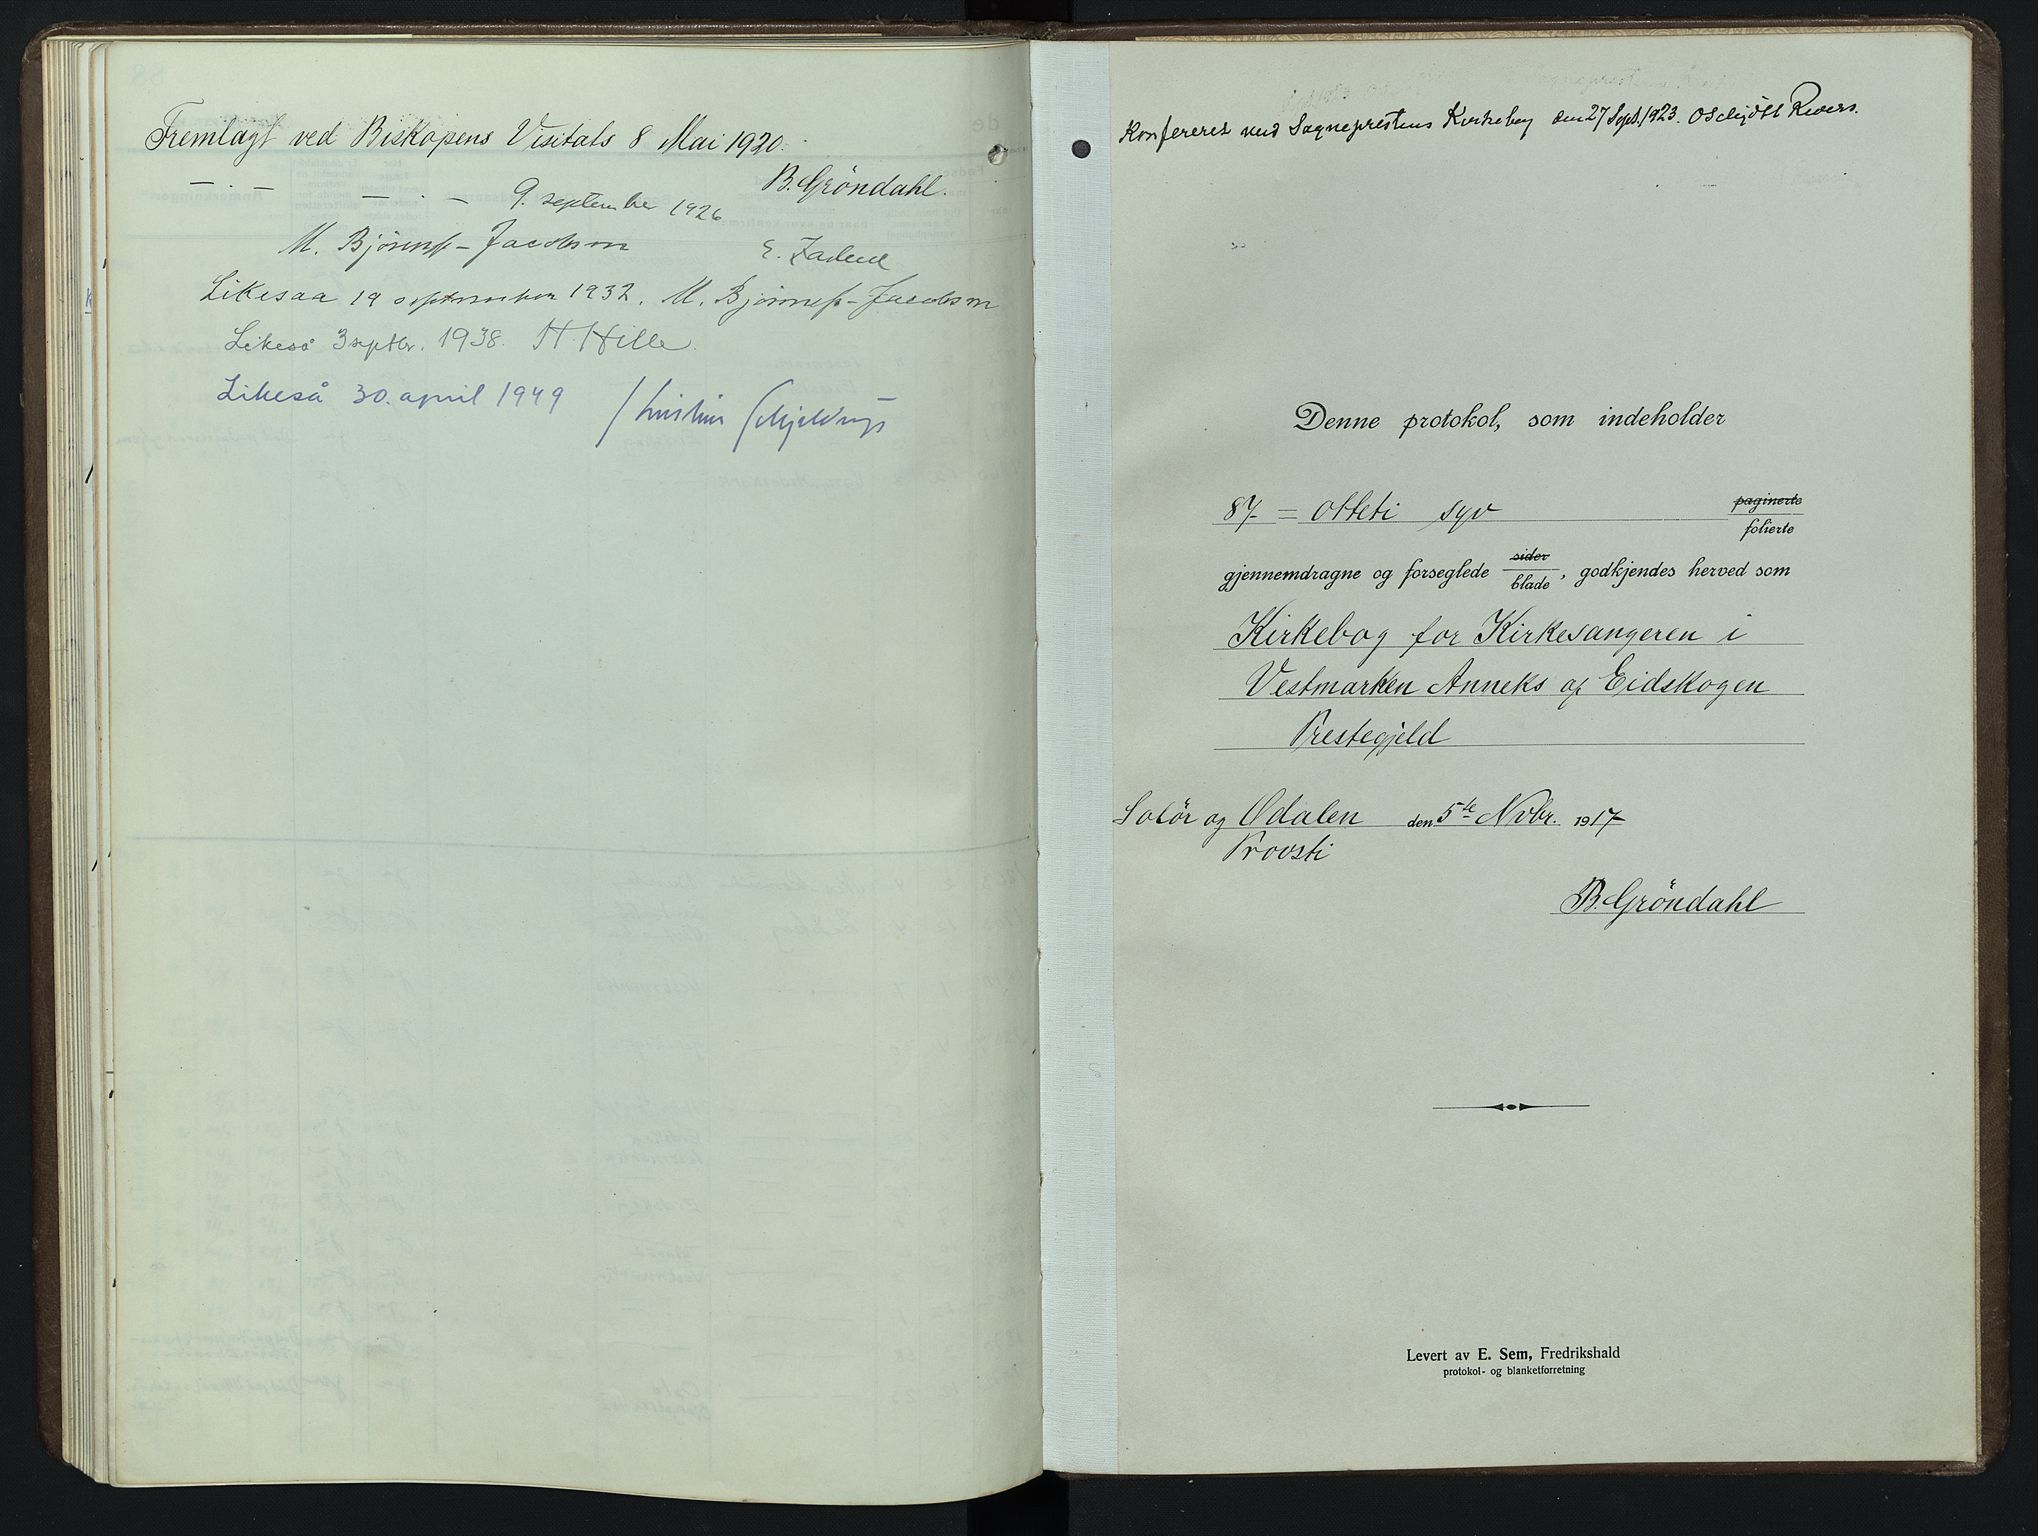 Fremlagt ved Biskopens Visitats 8 Mai 1920.
B. Gröndahl.
— . — — . — 9. september 1926
M. Bjønness-Jacobsen
Likesaa 19 september 1932. M. Bjønness-Jacobsen
Likeså 3 septbr. 1938. H. Hille.
Likeså 30. april 1949 Kristian Schjelderup
Konfereret med Sogneprestens Kirkebog den 27 Sept. 1923. O Schjött
Denne protokol, som indeholder
87 = otteti syv paginerte
folierte
gjennemdragne og forseglede sider
blade, godkjendes herved som
Kirkebog for Kirkesangeren i
Vestmarken Anneks af Eidskogen
Prestegjeld
Solör og Odalen den 5te Novbr. 1917
Provsti
B. Gröndahl
Levert av E. Sem, Fredrikshald
protokol- og blanketforretning